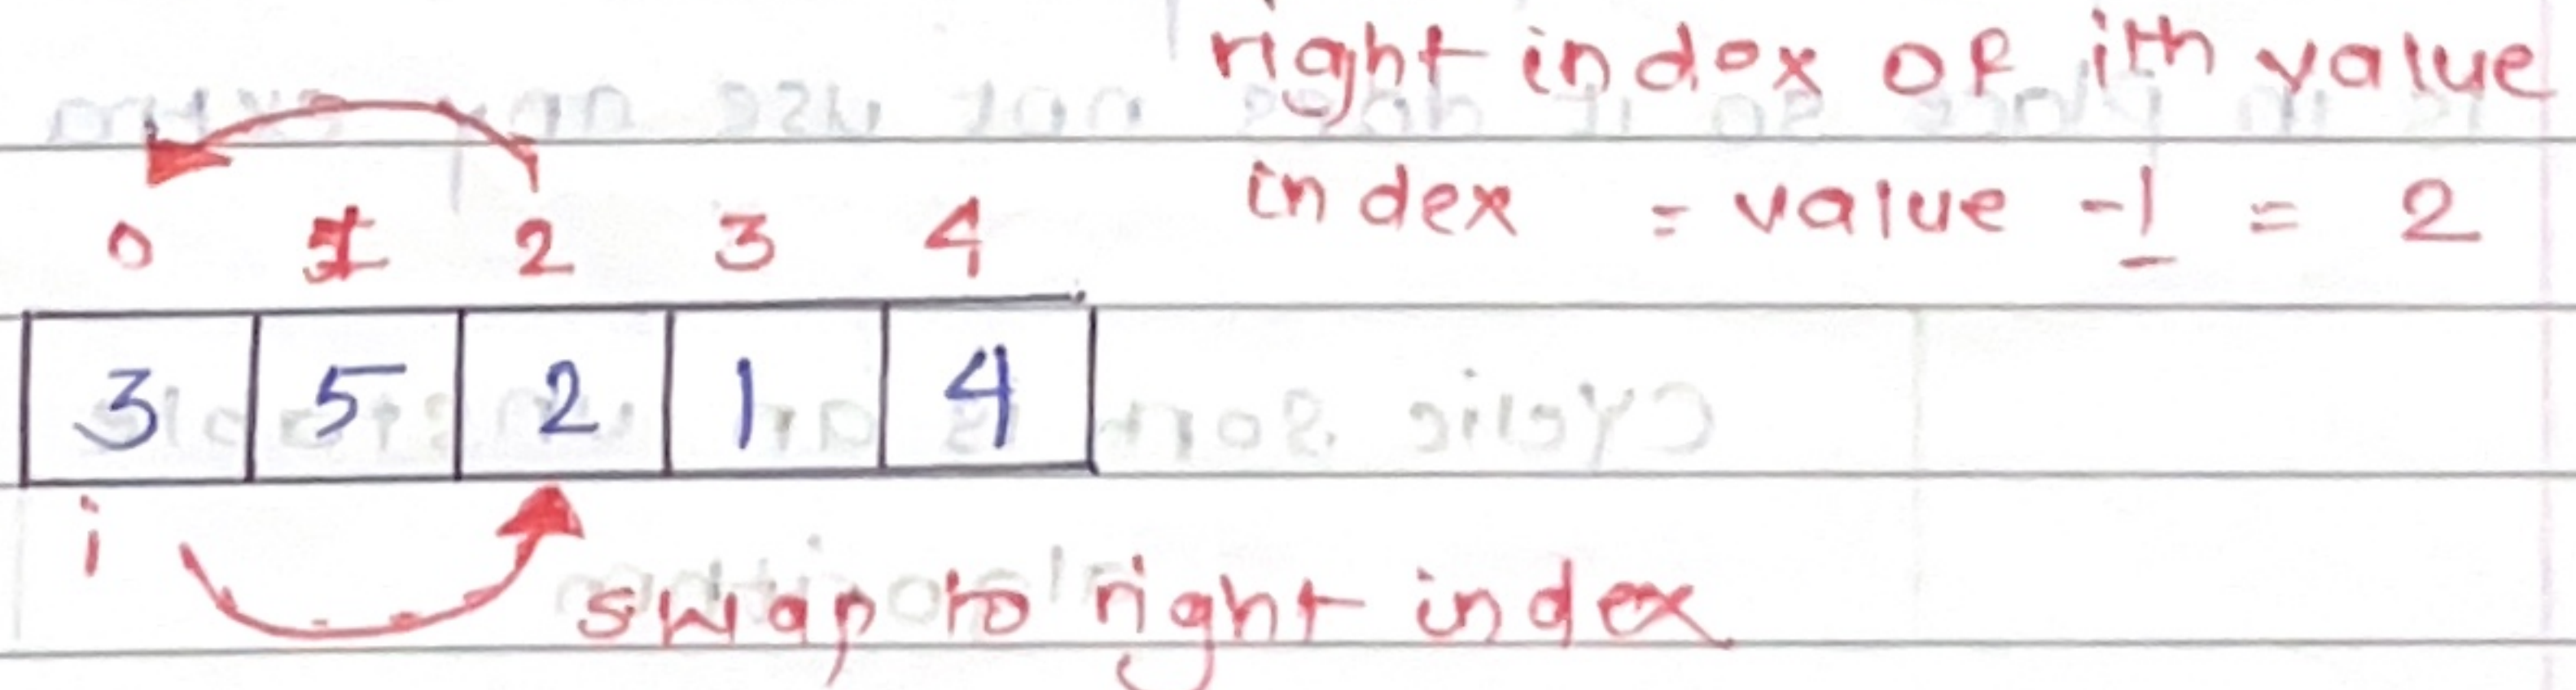 right index of ith value
index = value - 1 = 2
0 1 2 3 4
3 5 2 1 4
i
swap to right index